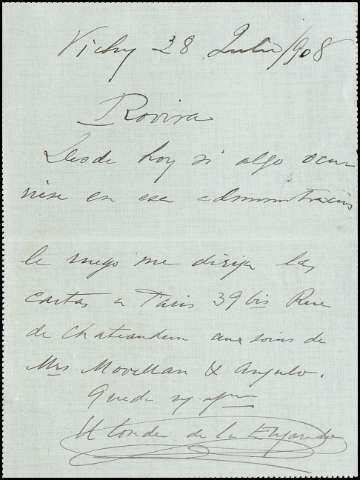 Vichy 28 Julio/908
Rovira
Desde hoy si algo ocu
riese en esa administracion
le ruego me dirija las
cartas a Paris 39 bis Rue
de Chateaudun aux soins de
Mrs Movellan & Angulo.
Queda sy
El Conde de la